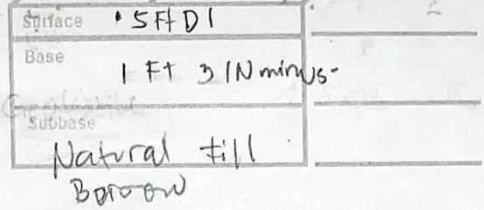 Surface .5 Ft D1
Base
1 Ft 3 IN minus-
Subbase
Natural fill
Borrow